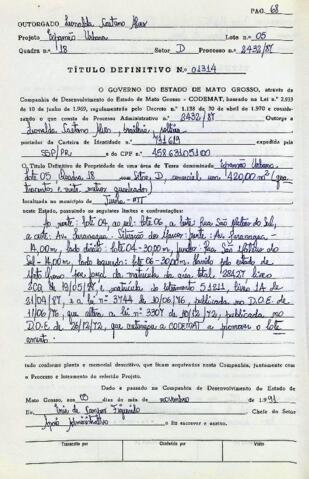 PAG. 68
OUTORGADO Leonilda Caetano Alves
Projeto Expansão Urbana Lote n.o 05
Quadra n.o 18 Setor D Processo n.o 2432/87
TÍTULO DEFINITIVO N.o 01314
O GOVERNO DO ESTADO DE MATO GROSSO, através da
Companhia de Desenvolvimento do Estado de Mato Grosso - CODEMAT, baseado na Lei n.o 2.933
de 10 de junho de 1969, regulamentada pelo Decreto n.o 1.138 de 30 de abril de 1970 e considerando
o que consta do Processo Administrativo n.o 2432/87 Outorga a
Leonilda Caetano Alves, brasileira, solteira
portador da Carteira de Identidade n.o 791619 expedida pela
SSP/PR e do CPF n.o 458631051-00
O Título Definitivo de Propriedade de uma área de Terra denominada Expansão Urbana
lote 05 Quadra 18 Setor D, comercial, com 420,00 m² (qua
trocentos e vinte metros quadrados)
localizada no município de Juína-MT
neste Estado, passando os seguintes limites e confrontações:
Ao norte: lote 04, ao sul: lote 06, a leste: Rua São Mateus do Sul,
a oeste: Av. Situação das faces: frente: Av.
14,00m, lado direito: lote 04-30,00m, fundos: Rua São Mateus do
Sul-14,00m, lado esquerdo: lote 06-30,00m. pelo estado de
Mato Grosso da matrícula da área total, 28427 livro
2CQ de 19/05/87, e do loteamento 51811 livro 1A de
21/09/87, e a lei nº 3744 de 10/06/76, publicada no D.O.E. de
11/06/76, que altera a lei nº 3307 de 10/12/72, publicada no
D.O.E de 26/12/72, que autorizou a CODEMAT a promover o lote
amento.
tudo conforme planta e memorial descritivo, que ficam arquivados nesta Companhia, juntamente com
o Processo e loteamento do referido Projeto.
Dado e passado na Companhia de Desenvolvimento do Estado de
Mato Grosso, aos 05 dias do mês de novembro de 1991
Eu, de Campos Figueiredo Chefe do Setor
Apoio Administrativo o fiz escrever e assino.
Transcrito por Conferido por Visto